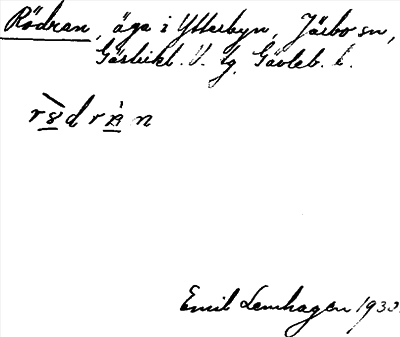 Rödran, äga i Ytterbyn, Järbo sn,
Gästrikl. V. tg, Gävleb. l.
Emil Lenhagen 1930.